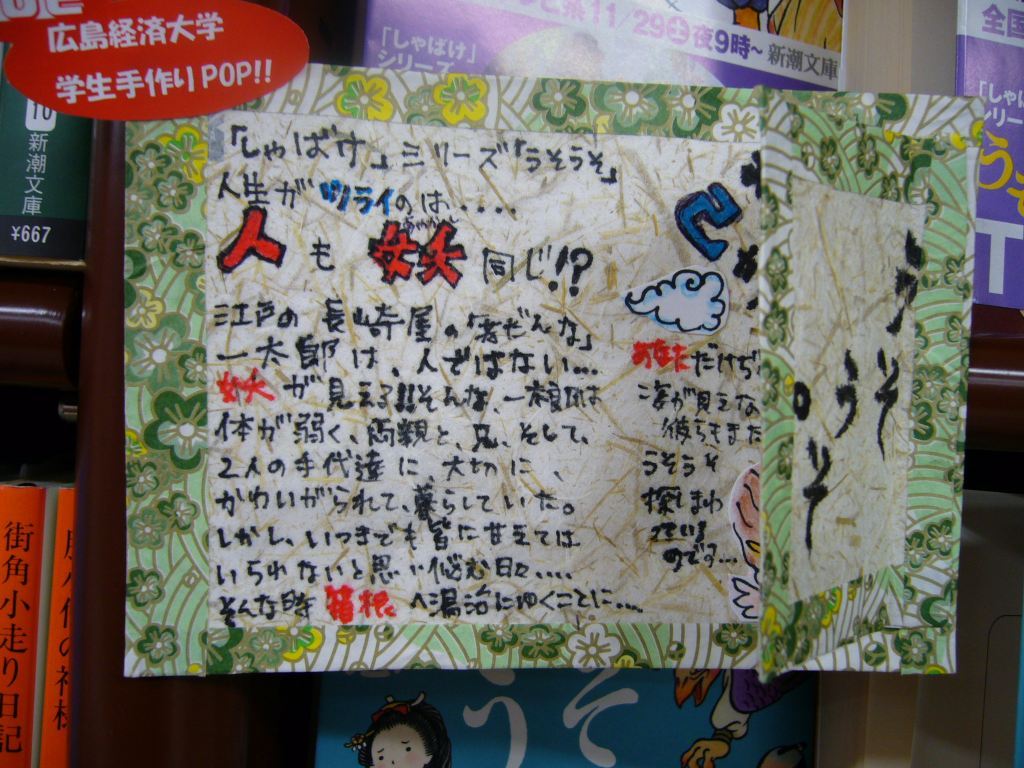 広島経済大学
学生手作りPOP!!
11/29土夜9時~
新潮文庫
「しゃばけ」
シリーズ
新潮文庫
¥667
「しゃばけ」シリーズ「うそうそ」
人生がツライのは....
人も妖同じ!?
江戸の長崎屋の「若だんな」
一太郎は、人ではない...
妖が見える!!そんな、一太郎は
体が弱く、両親と、兄、そして、
2人の手代達に大切に、
かわいがられて、暮らしていた。
しかし、いつまでも皆に甘えては
いられないと思い悩む日々....
そんな時箱根へ湯治にゆくことに...
あなただけぢ
姿が見えな
彼らもまた
うそうそ
探しまわ
ています
のです...
うそうそ
街角小走り日記
うそ
全国
T